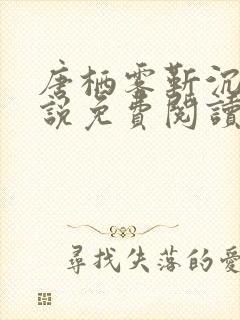 唐栖雯靳沉
說免費閱讀
尋找失落的愛